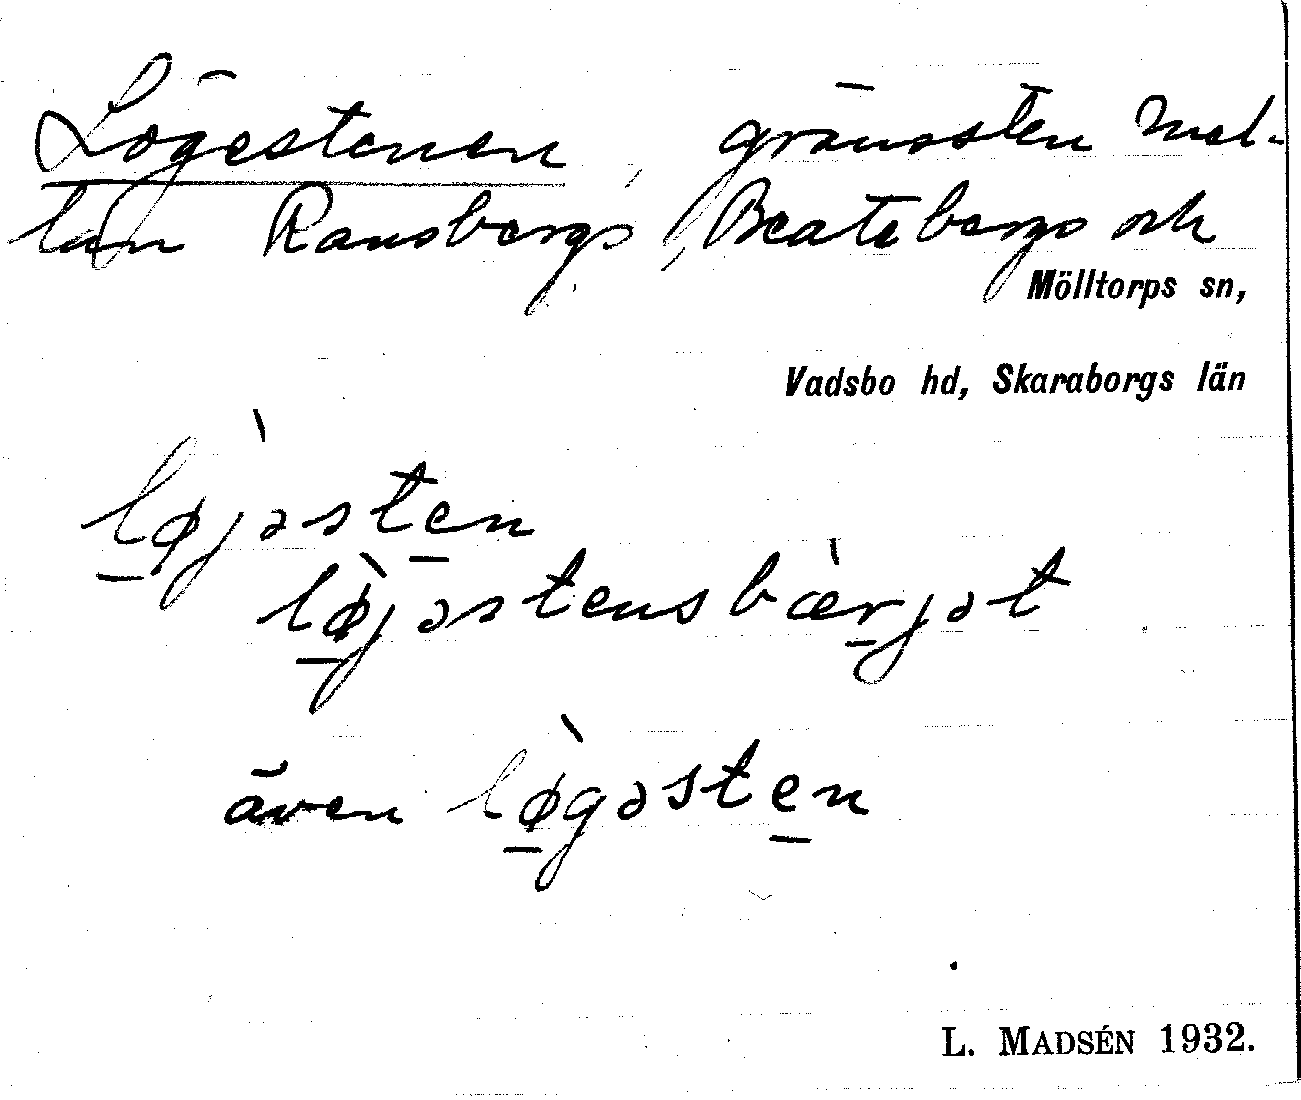 Lögestenen, gränssten mel-
lan Ransbergs, Beatebergs och
Mölltorps sn,
Vadsbo hd, Skaraborgs län
lø̀jəsten
lø̀jəstensbæ̀rjət
även lø̀gəsten
L. MADSÉN 1932.